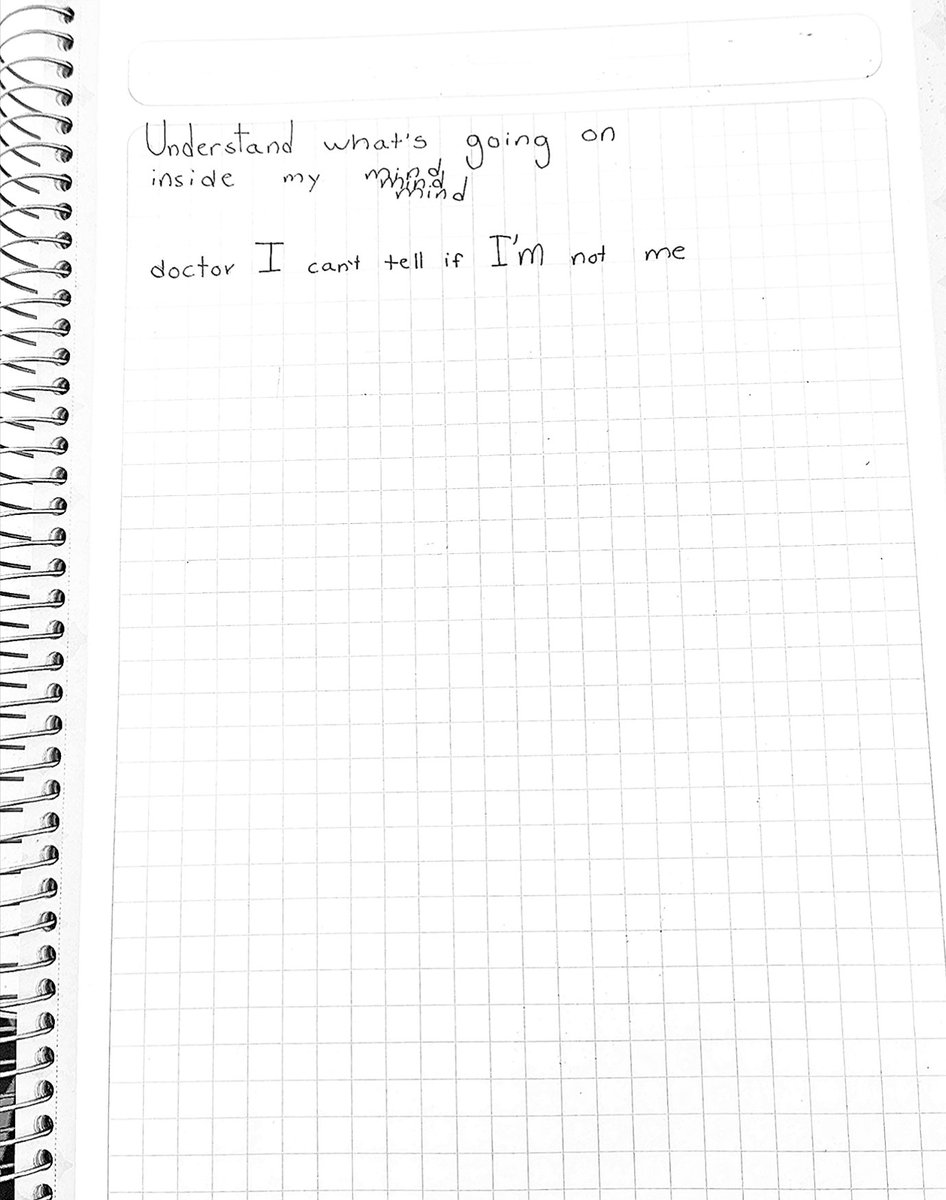 Understand what's going on
inside my mind
mind
mind
doctor I can't tell if I'm not me